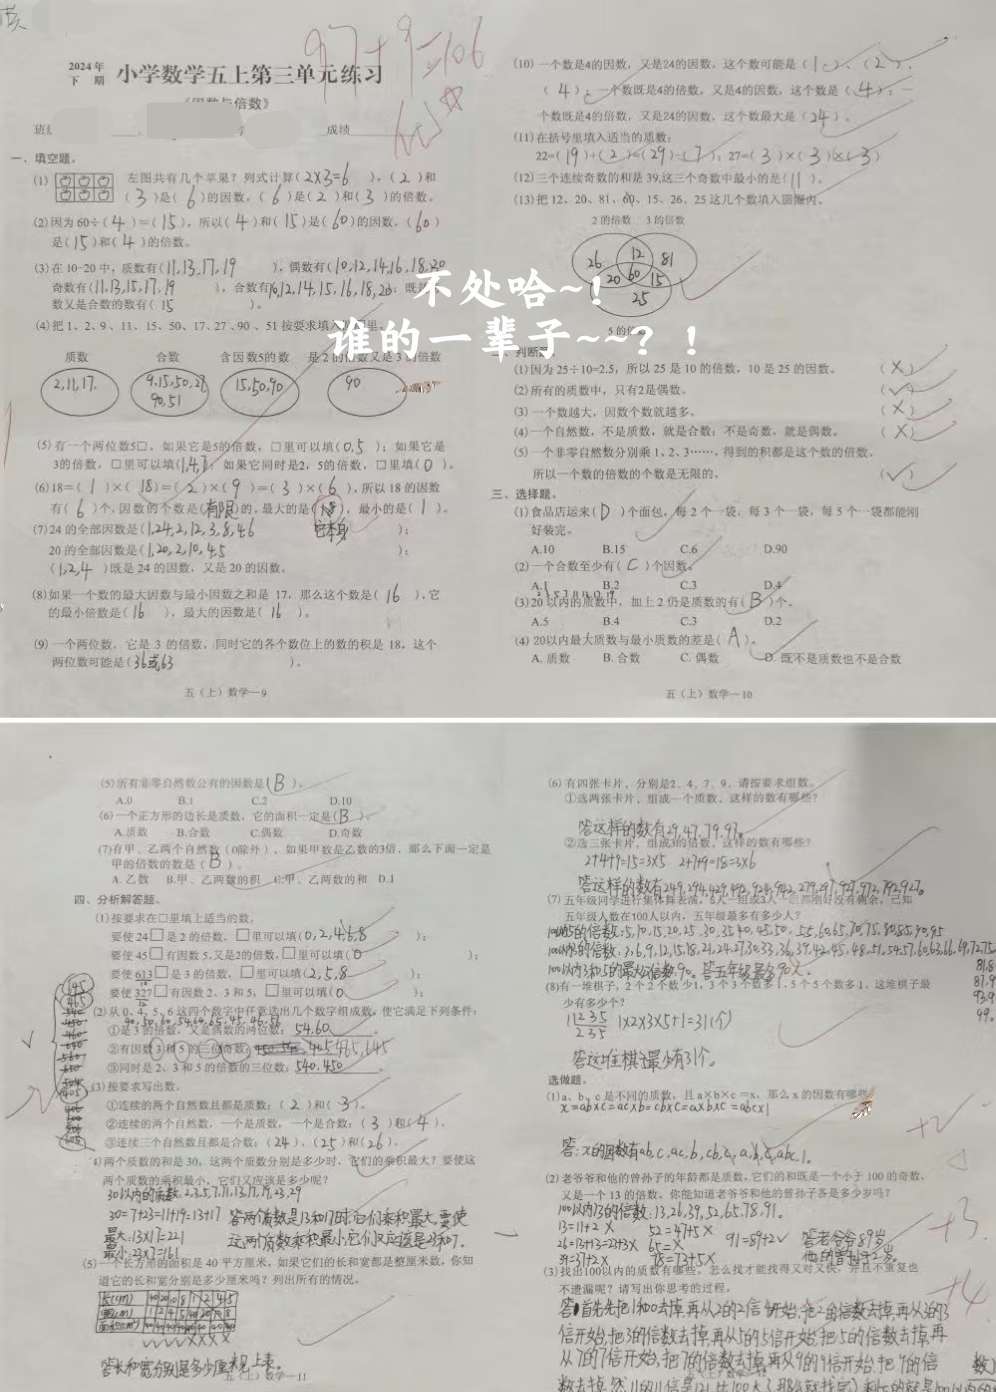 2024年
下 期
小学数学五上第三单元练习
《因数与倍数》
97+9=106
成绩
一、填空题。
(1) 左图共有几个苹果？列式计算(2×3=6 )，(2)和
(3)是(6)的因数，(6)是(2)和(3)的倍数。
(2)因为60÷(4)=(15)，所以(4)和(15)是(60)的因数，(60)
是(15)和(4)的倍数。
(3)在10-20中，质数有(11,13,17,19 )，偶数有(10,12,14,16,18,20
奇数有(11,13,15,17,19 )，合数有(10,12,14,15,16,18,20)；既是
数又是合数的数有(15 )。
(4)把1、2、9、11、15、50、17、27、90、51按要求填入
质数 合数 含因数5的数 是2的倍数又是3的倍数
2,11,17. 9,15,50,27 90,51 15,50,90 90
(5)有一个两位数5□，如果它是5的倍数，□里可以填(0,5 )；如果它是
3的倍数，□里可以填(1,4,7)，如果它同时是2，5的倍数，□里填(0)。
(6)18=(1)×(18)=(2)×(9)=(3)×(6)，所以18的因数
有(6)个，因数的个数是(有限)的，最大的是(18)，最小的是(1)。
它本身
(7)24的全部因数是(1,24,2,12,3,8,4,6 )；
20的全部因数是(1,20,2,10,4,5 )；
(1,2,4 )既是24的因数，又是20的因数。
(8)如果一个数的最大因数与最小因数之和是17，那么这个数是(16 )，它
的最小倍数是(16 )，最大的因数是(16 )。
(9)一个两位数，它是3的倍数，同时它的各个数位上的数的积是18，这个
两位数可能是(36或63 )。
五（上）数学—9
(10)一个数是4的因数，又是24的因数，这个数可能是(1)、(2)、
(4)；一个数既是4的倍数，又是4的因数，这个数是(4)；一
个数既是4的倍数，又是24的因数，这个数最大是(24)。
(11)在括号里填入适当的质数：
22=(19)+(2)=(29)-(7)，27=(3)×(3)×(3)
(12)三个连续奇数的和是39,这三个奇数中最小的是(11)。
(13)把12、20、81、60、15、26、25这几个数填入圆圈内。
2的倍数 3的倍数
26 12 81
20 60 15
25
5的倍
不处哈~！
谁的一辈子~~？！
判断
(1)因为25÷10=2.5，所以25是10的倍数，10是25的因数。 (×)
(2)所有的质数中，只有2是偶数。 (√)
(3)一个数越大，因数个数就越多。 (×)
(4)一个自然数，不是质数，就是合数；不是奇数，就是偶数。 (×)
(5)一个非零自然数分别乘1、2、3……，得到的积都是这个数的倍数，
所以一个数的倍数的个数是无限的。 (√)
三、选择题。
(1)食品店运来(D)个面包，每2个一袋，每3个一袋，每5个一袋都能刚
好装完。
A.10 B.15 C.6 D.90
(2)一个合数至少有(C)个因数。
A.1 B.2 C.3 D.4
(3)20以内的质数中，加上2仍是质数的有(B)个。
A.5 B.4 C.3 D.2
(4)20以内最大质数与最小质数的差是(A)。
A.质数 B.合数 C.偶数 D.既不是质数也不是合数
五（上）数学—10
(5)所有非零自然数公有的因数是(B)。
A.0 B.1 C.2 D.10
(6)一个正方形的边长是质数，它的面积一定是(B)。
A.质数 B.合数 C.偶数 D.奇数
(7)有甲、乙两个自然数（0除外），如果甲数是乙数的3倍，那么下面一定是
甲的倍数的数是(B)。
A.乙数 B.甲、乙两数的积 C.甲、乙两数的和 D.1
四、分析解答题。
(1)按要求在□里填上适当的数。
要使24□是2的倍数，□里可以填(0,2,4,6,8 )；
要使45□有因数5,又是2的倍数，□里可以填(0 )；
要使613□是3的倍数，□里可以填(2,5,8 )；
要使327□有因数2、3和5，□里可以填(0 )；
(2)从0、4、5、6这四个数字中任意选出几个数字组成数，使它满足下列条件：
①是3的倍数，又是偶数的两位数：54,60
②有因数3和5的三位奇数：405,465,645
③同时是2、3和5的倍数的三位数：540,450
(3)按要求写出数。
①连续的两个自然数且都是质数：(2)和(3)。
②连续的两个自然数，一个是质数，一个是合数：(3)和(4)。
③连续三个自然数且都是合数：(24)、(25)和(26)。
(4)两个质数的和是30，这两个质数分别是多少时，它们的乘积最大？要使这
两个质数的乘积最小，它们又应该是多少呢？
30以内的质数:2,3,5,7,11,13,17,19,23,29
30=7+23=11+19=13+17 答两个质数是13和17时,它们乘积最大,要使
最大:13×17=221 这两个质数乘积最小,它们又应该是23和7。
最小:23×7=161
(5)一个长方形的面积是40平方厘米，如果它的长和宽都是整厘米数，你知
道它的长和宽分别是多少厘米吗？列出所有的情况。
答长和宽分别是多少厘米见上表。
五（上）数学—11
(6)有四张卡片，分别是2、4、7、9，请按要求组数。
①选两张卡片，组成一个质数，这样的数有哪些？
答这样的数有29,47,79,97。
②选三张卡片，组成3的倍数，这样的数有哪些？
2+4+9=15=3×5 2+7+9=18=3×6
答这样的数有249,294,429,492,924,942,279,297,729,792,972,927。
(7)五年级同学进行集体舞表演，5人一组或3人一组都刚好没有剩余，已知
五年级人数在100人以内，五年级最多有多少人？
100以内5的倍数:5,10,15,20,25,30,35,40,45,50,55,60,65,70,75,80,85,90,95
100以内3的倍数:3,6,9,12,15,18,21,24,27,30,33,36,39,42,45,48,51,54,57,60,63,66,69,72,75
100以内3和5的最大公倍数:90。答五年级最多90人。
(8)有一堆棋子，2个2个数少1，3个3个数多1，5个5个数多1，这堆棋子最
少有多少个？
1×2×3×5+1=31(个)
答这堆棋子最少有31个。
选做题。
(1)a、b、c是不同的质数，且a×b×c=x，那么x的因数有哪些？
x=ab×c=ac×b=cb×c=a×b×c=abc×1
答:x的因数有ab,c,ac,b,cb,a,abc,1。
+2
(2)老爷爷和他的曾孙子的年龄都是质数，它们的和既是一个小于100的奇数，
又是一个13的倍数，你能知道老爷爷和他的曾孙子各是多少岁吗？
100以内13的倍数:13,26,39,52,65,78,91。
13=11+2 × 52=47+5 × 91=89+2 √ 答老爷爷89岁,
26=13+13=23+3 × 65= × 他的曾孙子2岁。
39=37+2 × 78=73+5 ×
+3
(3)找出100以内的质数有哪些。怎么找才能找得又对又快，并且不重复也
不遗漏呢？请写出你思考的过程。
+4
答:首先先把1和0去掉,再从2的2倍开始,把2的倍数去掉,再从3的3
倍开始,把3的倍数去掉,再从5的5倍开始,把5的倍数去掉,再
从7的7倍开始,把7的倍数去掉,再从9的9倍开始,把9的倍